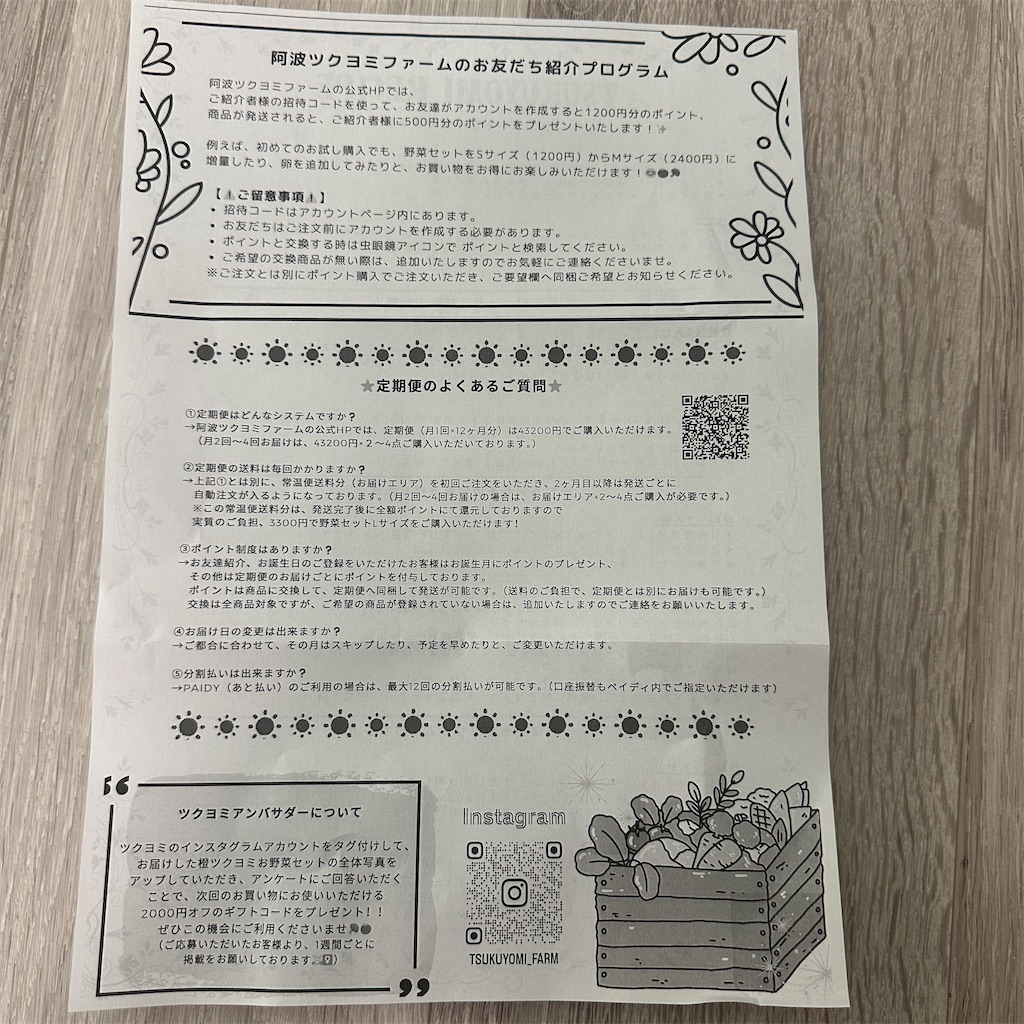 阿波ツクヨミファームのお友だち紹介プログラム
阿波ツクヨミファームの公式HPでは、
ご紹介者様の招待コードを使って、お友達がアカウントを作成すると1200円分のポイント、
商品が発送されると、ご紹介者様に500円分のポイントをプレゼントいたします！
例えば、初めてのお試し購入でも、野菜セットをSサイズ（1200円）からMサイズ（2400円）に
増量したり、卵を追加してみたりと、お買い物をお得にお楽しみいただけます！
【⚠ご留意事項⚠】
• 招待コードはアカウントページ内にあります。
• お友だちはご注文前にアカウントを作成する必要があります。
• ポイントと交換する時は虫眼鏡アイコンで ポイントと検索してください。
• ご希望の交換商品が無い際は、追加いたしますのでお気軽にご連絡くださいませ。
※ご注文とは別にポイント購入でご注文いただき、ご要望欄へ同梱ご希望とお知らせください。
★定期便のよくあるご質問★
①定期便はどんなシステムですか？
→阿波ツクヨミファームの公式HPでは、定期便（月1回×12ヶ月分）は43200円でご購入いただけます。
（月2回〜4回お届けは、43200円×２〜4点ご購入いただいております。）
②定期便の送料は毎回かかりますか？
→上記①とは別に、常温便送料分（お届けエリア）を初回ご注文をいただき、2ヶ月目以降は発送ごとに
自動注文が入るようになっております。（月2回〜4回お届けの場合は、お届けエリア×2〜4点ご購入が必要です。）
※この常温便送料分は、発送完了後に全額ポイントにて還元しておりますので
実質のご負担、3300円で野菜セットLサイズをご購入いただけます！
③ポイント制度はありますか？
→お友達紹介、お誕生日のご登録をいただけたお客様はお誕生月にポイントのプレゼント、
その他は定期便のお届けごとにポイントを付与しております。
ポイントは商品に交換して、定期便へ同梱して発送が可能です。（送料のご負担で、定期便とは別にお届けも可能です。）
交換は全商品対象ですが、ご希望の商品が登録されていない場合は、追加いたしますのでご連絡をお願いいたします。
④お届け日の変更は出来ますか？
→ご都合に合わせて、その月はスキップしたり、予定を早めたりと、ご変更いただけます。
⑤分割払いは出来ますか？
→PAIDY（あと払い）のご利用の場合は、最大12回の分割払いが可能です。（口座振替もペイディ内でご指定いただけます）
ツクヨミアンバサダーについて
ツクヨミのインスタグラムアカウントをタグ付けして、
お届けした橙ツクヨミお野菜セットの全体写真を
アップしていただき、アンケートにご回答いただく
ことで、次回のお買い物にお使いいただける
2000円オフのギフトコードをプレゼント！！
ぜひこの機会にご利用くださいませ
（ご応募いただいたお客様より、1週間ごとに
掲載をお願いしております。）
Instagram
TSUKUYOMI_FARM